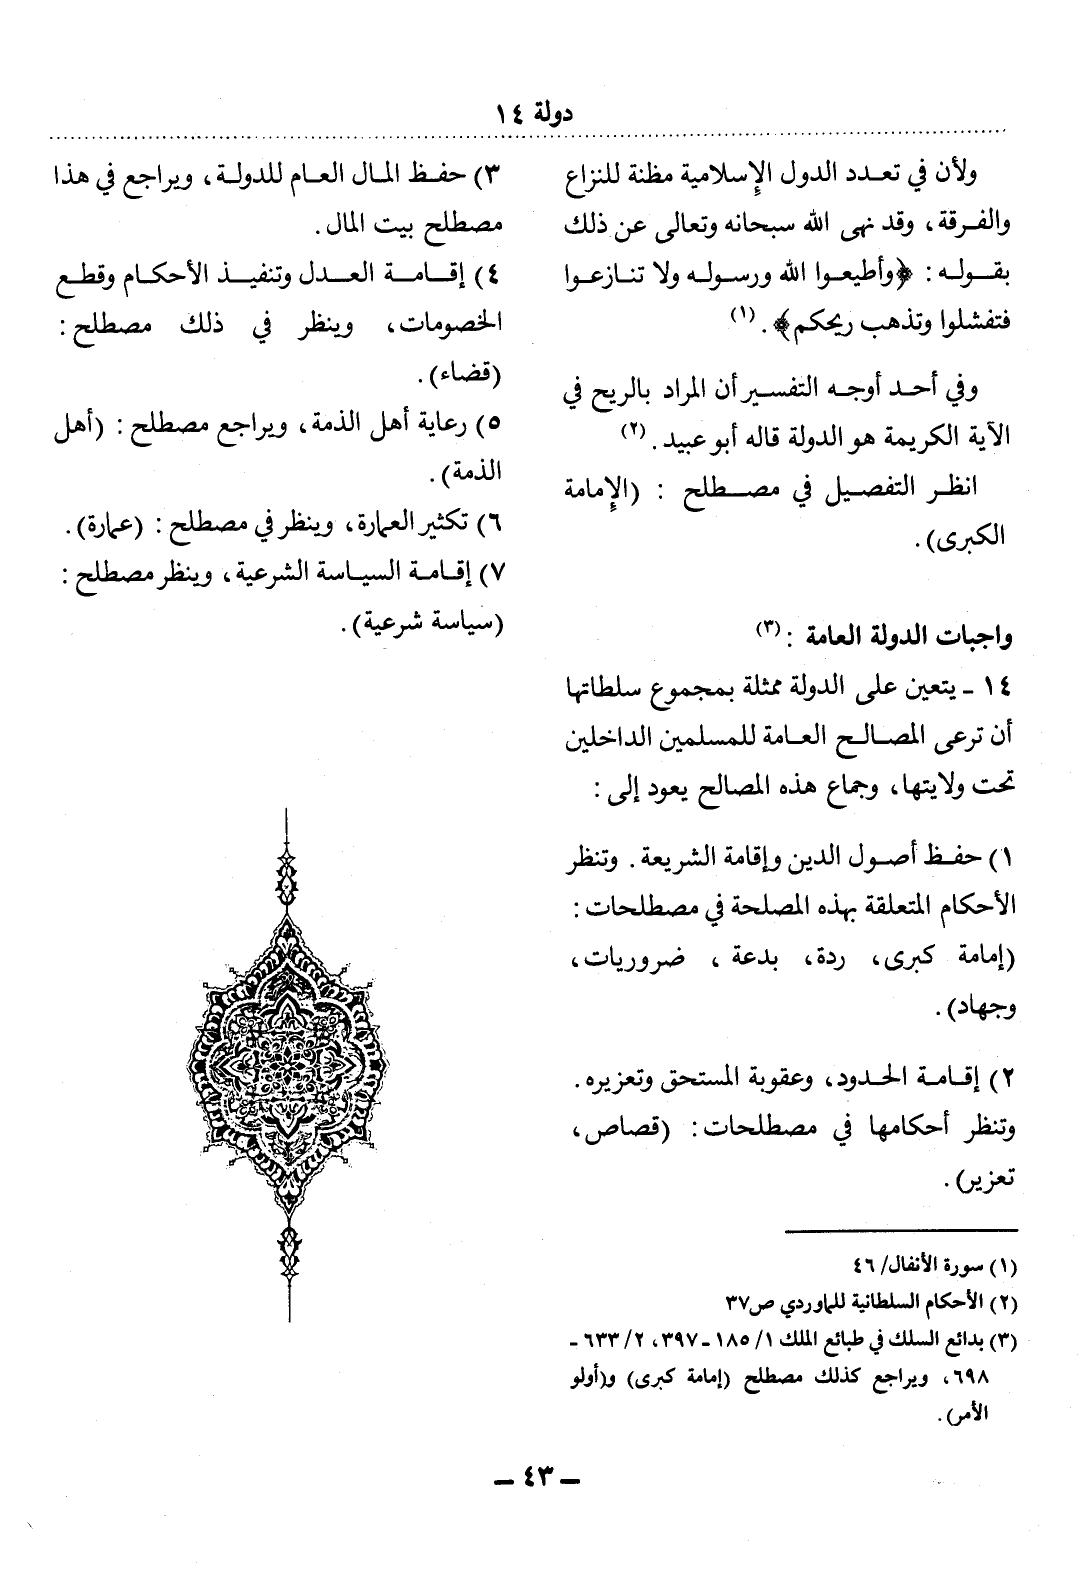 دولة ١٤
ولأن في تعدد الدول الإسلامية مظنة للنزاع
والفرقة، وقد نهى الله سبحانه وتعالى عن ذلك
بقوله : ﴿وأطيعوا الله ورسوله ولا تنازعوا
فتفشلوا وتذهب ريحكم﴾ . (١)
وفي أحد أوجه التفسير أن المراد بالريح في
الآية الكريمة هو الدولة قاله أبو عبيد . (٢)
انظر التفصيل في مصطلح : (الإمامة
الكبرى) .
واجبات الدولة العامة : (٣)
١٤ ـ يتعين على الدولة ممثلة بمجموع سلطاتها
أن ترعى المصالح العامة للمسلمين الداخلين
تحت ولايتها، وجماع هذه المصالح يعود إلى :
١) حفظ أصول الدين وإقامة الشريعة . وتنظر
الأحكام المتعلقة بهذه المصلحة في مصطلحات :
(إمامة كبرى، ردة، بدعة ، ضروريات،
وجهاد) .
٢) إقامة الحدود، وعقوبة المستحق وتعزيره .
وتنظر أحكامها في مصطلحات : (قصاص،
تعزير) .
(١) سورة الأنفال/ ٤٦
(٢) الأحكام السلطانية للماوردي ص٣٧
(٣) بدائع السلك في طبائع الملك ١/ ١٨٥ ـ ٣٩٧، ٢/ ٦٣٣ ـ
٦٩٨، ويراجع كذلك مصطلح (إمامة كبرى) و(أولو
الأمر) .
٣) حفظ المال العام للدولة، ويراجع في هذا
مصطلح بيت المال .
٤) إقامة العدل وتنفيذ الأحكام وقطع
الخصومات، وينظر في ذلك مصطلح :
(قضاء) .
٥) رعاية أهل الذمة، ويراجع مصطلح : (أهل
الذمة) .
٦) تكثير العمارة، وينظر في مصطلح : (عمارة) .
٧) إقامة السياسة الشرعية، وينظر مصطلح :
(سياسة شرعية) .
ـ ٤٣ ـ